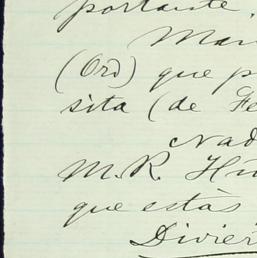 portante.
Man
(Ord) que p
sita (de Fe
Nad
M. R. Hu
que estás
Divier